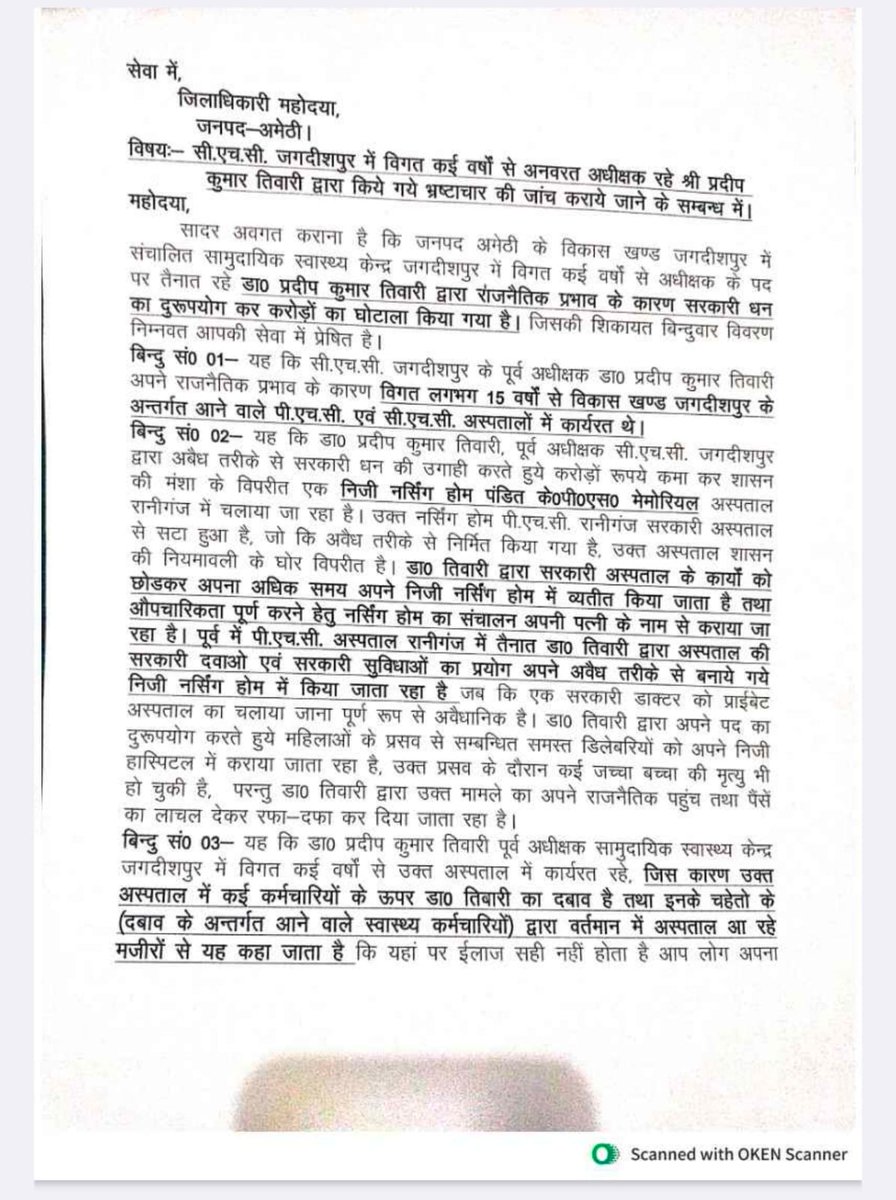 सेवा में,
जिलाधिकारी महोदया,
जनपद–अमेठी।
विषयः– सी.एच.सी. जगदीशपुर में विगत कई वर्षो से अनवरत अधीक्षक रहे श्री प्रदीप
कुमार तिवारी द्वारा किये गये भ्रष्टाचार की जांच कराये जाने के सम्बन्ध में।
महोदया,
सादर अवगत कराना है कि जनपद अमेठी के विकास खण्ड जगदीशपुर में
संचालित सामुदायिक स्वास्थ्य केन्द्र जगदीशपुर में विगत कई वर्षो से अधीक्षक के पद
पर तैनात रहे डा0 प्रदीप कुमार तिवारी द्वारा राजनैतिक प्रभाव के कारण सरकारी धन
का दुरूपयोग कर करोड़ों का घोटाला किया गया है। जिसकी शिकायत बिन्दुवार विवरण
निम्नवत आपकी सेवा में प्रेषित है।
बिन्दु सं0 01– यह कि सी.एच.सी. जगदीशपुर के पूर्व अधीक्षक डा0 प्रदीप कुमार तिवारी
अपने राजनैतिक प्रभाव के कारण विगत लगभग 15 वर्षो से विकास खण्ड जगदीशपुर के
अन्तर्गत आने वाले पी.एच.सी. एवं सी.एच.सी. अस्पतालों में कार्यरत थे।
बिन्दु सं0 02– यह कि डा0 प्रदीप कुमार तिवारी, पूर्व अधीक्षक सी.एच.सी. जगदीशपुर
द्वारा अबैध तरीके से सरकारी धन की उगाही करते हुये करोड़ों रूपये कमा कर शासन
की मंशा के विपरीत एक निजी नर्सिंग होम पंडित के0पी0एस0 मेमोरियल अस्पताल
रानीगंज में चलाया जा रहा है। उक्त नर्सिंग होम पी.एच.सी. रानीगंज सरकारी अस्पताल
से सटा हुआ है, जो कि अवैध तरीके से निर्मित किया गया है, उक्त अस्पताल शासन
की नियमावली के घोर विपरीत है। डा0 तिवारी द्वारा सरकारी अस्पताल के कार्यो को
छोडकर अपना अधिक समय अपने निजी नर्सिंग होम में व्यतीत किया जाता है तथा
औपचारिकता पूर्ण करने हेतु नर्सिंग होम का संचालन अपनी पत्नी के नाम से कराया जा
रहा है। पूर्व में पी.एच.सी. अस्पताल रानीगंज में तैनात डा0 तिवारी द्वारा अस्पताल की
सरकारी दवाओ एवं सरकारी सुविधाओं का प्रयोग अपने अवैध तरीके से बनाये गये
निजी नर्सिंग होम में किया जाता रहा है जब कि एक सरकारी डाक्टर को प्राईबेट
अस्पताल का चलाया जाना पूर्ण रूप से अवैधानिक है। डा0 तिवारी द्वारा अपने पद का
दुरूपयोग करते हुये महिलाओं के प्रसव से सम्बन्धित समस्त डिलेबरियों को अपने निजी
हास्पिटल में कराया जाता रहा है, उक्त प्रसव के दौरान कई जच्चा बच्चा की मृत्यु भी
हो चुकी है, परन्तु डा0 तिवारी द्वारा उक्त मामले का अपने राजनैतिक पहुंच तथा पैंसें
का लाचल देकर रफा–दफा कर दिया जाता रहा है।
बिन्दु सं0 03– यह कि डा0 प्रदीप कुमार तिवारी पूर्व अधीक्षक सामुदायिक स्वास्थ्य केन्द्र
जगदीशपुर में विगत कई वर्षो से उक्त अस्पताल में कार्यरत रहे, जिस कारण उक्त
अस्पताल में कई कर्मचारियों के ऊपर डा0 तिबारी का दबाव है तथा इनके चहेतो के
(दबाव के अन्तर्गत आने वाले स्वास्थ्य कर्मचारियों) द्वारा वर्तमान में अस्पताल आ रहे
मजीरों से यह कहा जाता है कि यहां पर ईलाज सही नहीं होता है आप लोग अपना
Scanned with OKEN Scanner